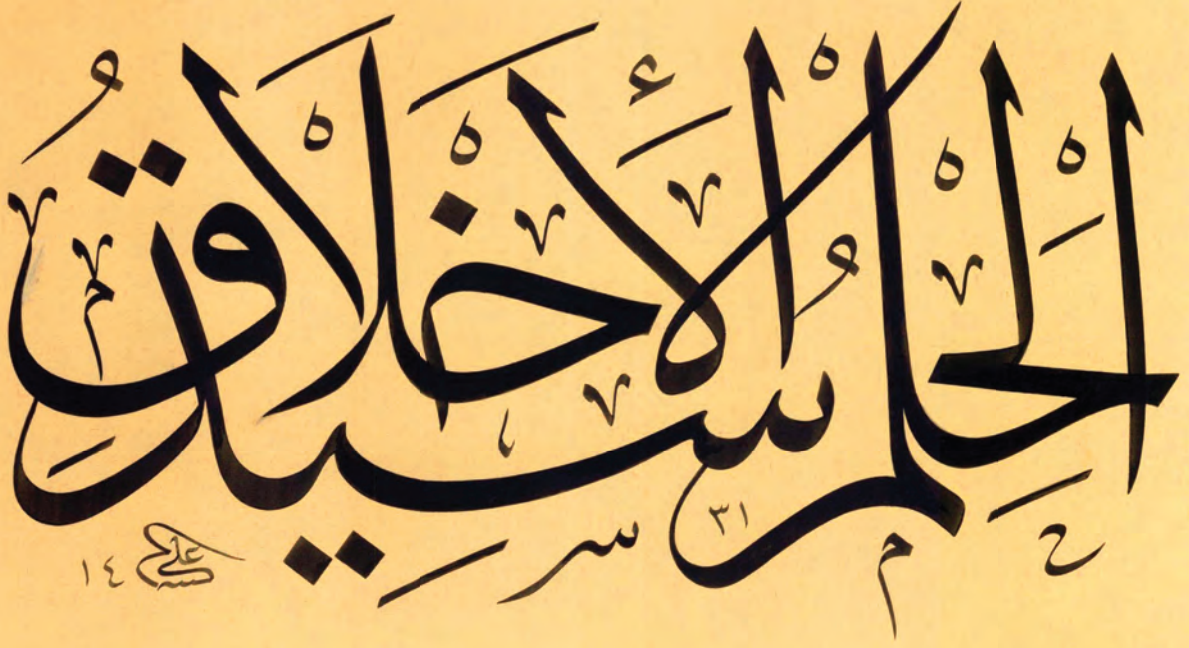 اَلْحِلْمُ سَيِّدُ الْأَخْلَاقِ
٣١
علي ١٤